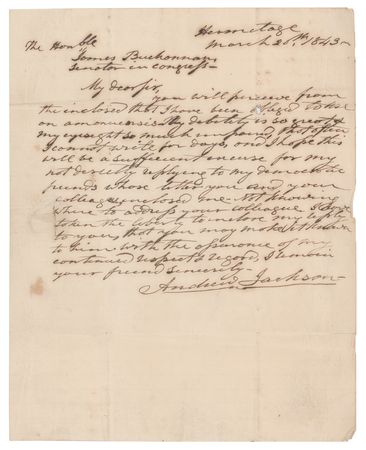 Hermitage
March 26th, 1843
The Honble
James Buchannan,
Senator in Congress
My dear sir,
you will perceive from
the inclosed that I have been obliged to use
an amanuensis. My debility is so great &
my eyesight so much impaired, that often
I cannot write for days, and I hope this
will be a sufficient excuse for my
not directly replying to my democratic
friends whose letter you and your
colleague enclosed me. Not knowing
where to address your colleague I have
taken the liberty to inclose my reply
to you, that you may make it known
to him. With the assurance of my
continued respect & regard, I remain
your friend sincerely.
Andrew Jackson